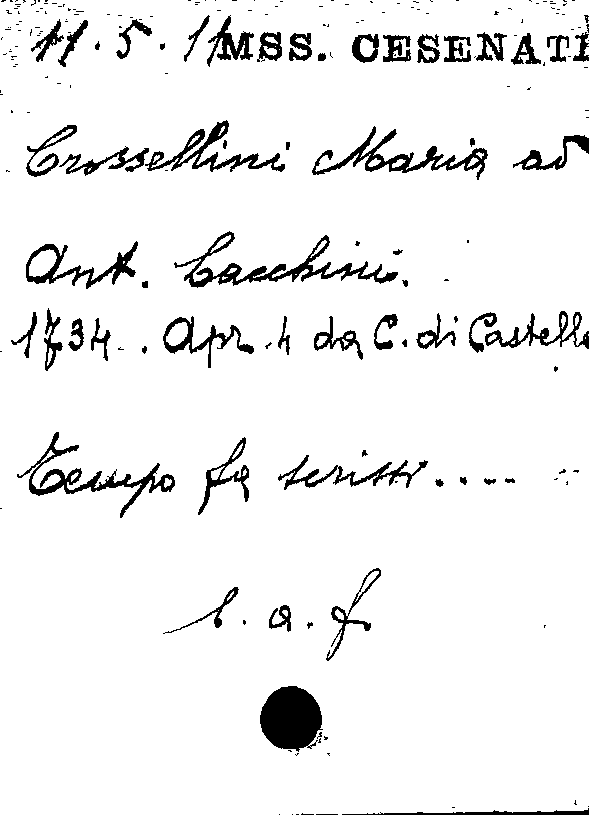 11.5.11 MSS. CESENATI
Crossellini Maria ad
Ant. Cacchini.
1734. Apr. 4 da C. di Castello
Tempo fa scrissi....
l. a. f.